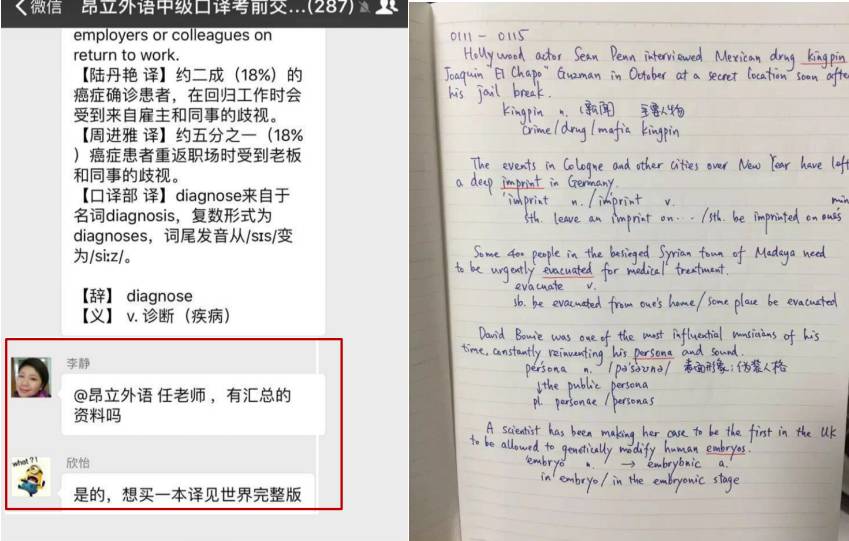 微信
昂立外语中级口译考前交...(287)
employers or colleagues on
return to work.
【陆丹艳 译】约二成（18%）的
癌症确诊患者，在回归工作时会
受到来自雇主和同事的歧视。
【周进雅 译】约五分之一（18%
）癌症患者重返职场时受到老板
和同事的歧视。
【口译部 译】diagnose来自于
名词diagnosis，复数形式为
diagnoses，词尾发音从/sɪs/变
为/siːz/。
【辞】 diagnose
【义】 v. 诊断（疾病）
李静
@昂立外语 任老师 ，有汇总的
资料吗
what?!
欣怡
是的，想买一本译见世界完整版
0111 - 0115
Hollywood actor Sean Penn interviewed Mexican drug kingpin
Joaquin "El Chapo" Guzman in October at a secret location soon after
his jail break.
kingpin n. (新闻) 主要人物
crime/drug/mafia kingpin
The events in Cologne and other cities over New Year have left
a deep imprint in Germany.
'imprint n. / im'print v.
sth. leave an imprint on... / sth. be imprinted on one's
min
Some 400 people in the besieged Syrian town of Madaya need
to be urgently evacuated for medical treatment.
evacuate v.
sb. be evacuated from one's home / some place be evacuated
David Bowie was one of the most influential musicians of his
time, constantly reinventing his persona and sound.
persona n. /pə'səʊnə/ 表面形象；伪装人格
↓the public persona
pl. personae / personas
A scientist has been making her case to be the first in the UK
to be allowed to genetically modify human embryos.
'embryo n. → embryonic a.
in embryo / in the embryonic stage